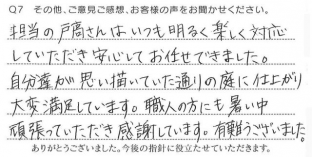 Q7 その他、ご意見ご感想、お客様の声をお聞かせください。
担当の戸高さんはいつも明るく楽しく対応
していただき安心してお任せできました。
自分達が思い描いていた通りの庭に仕上がり
大変満足しています。職人の方にも暑い中
頑張っていただき感謝しています。有難うございました。
ありがとうございました。今後の指針に役立たせていただきます。